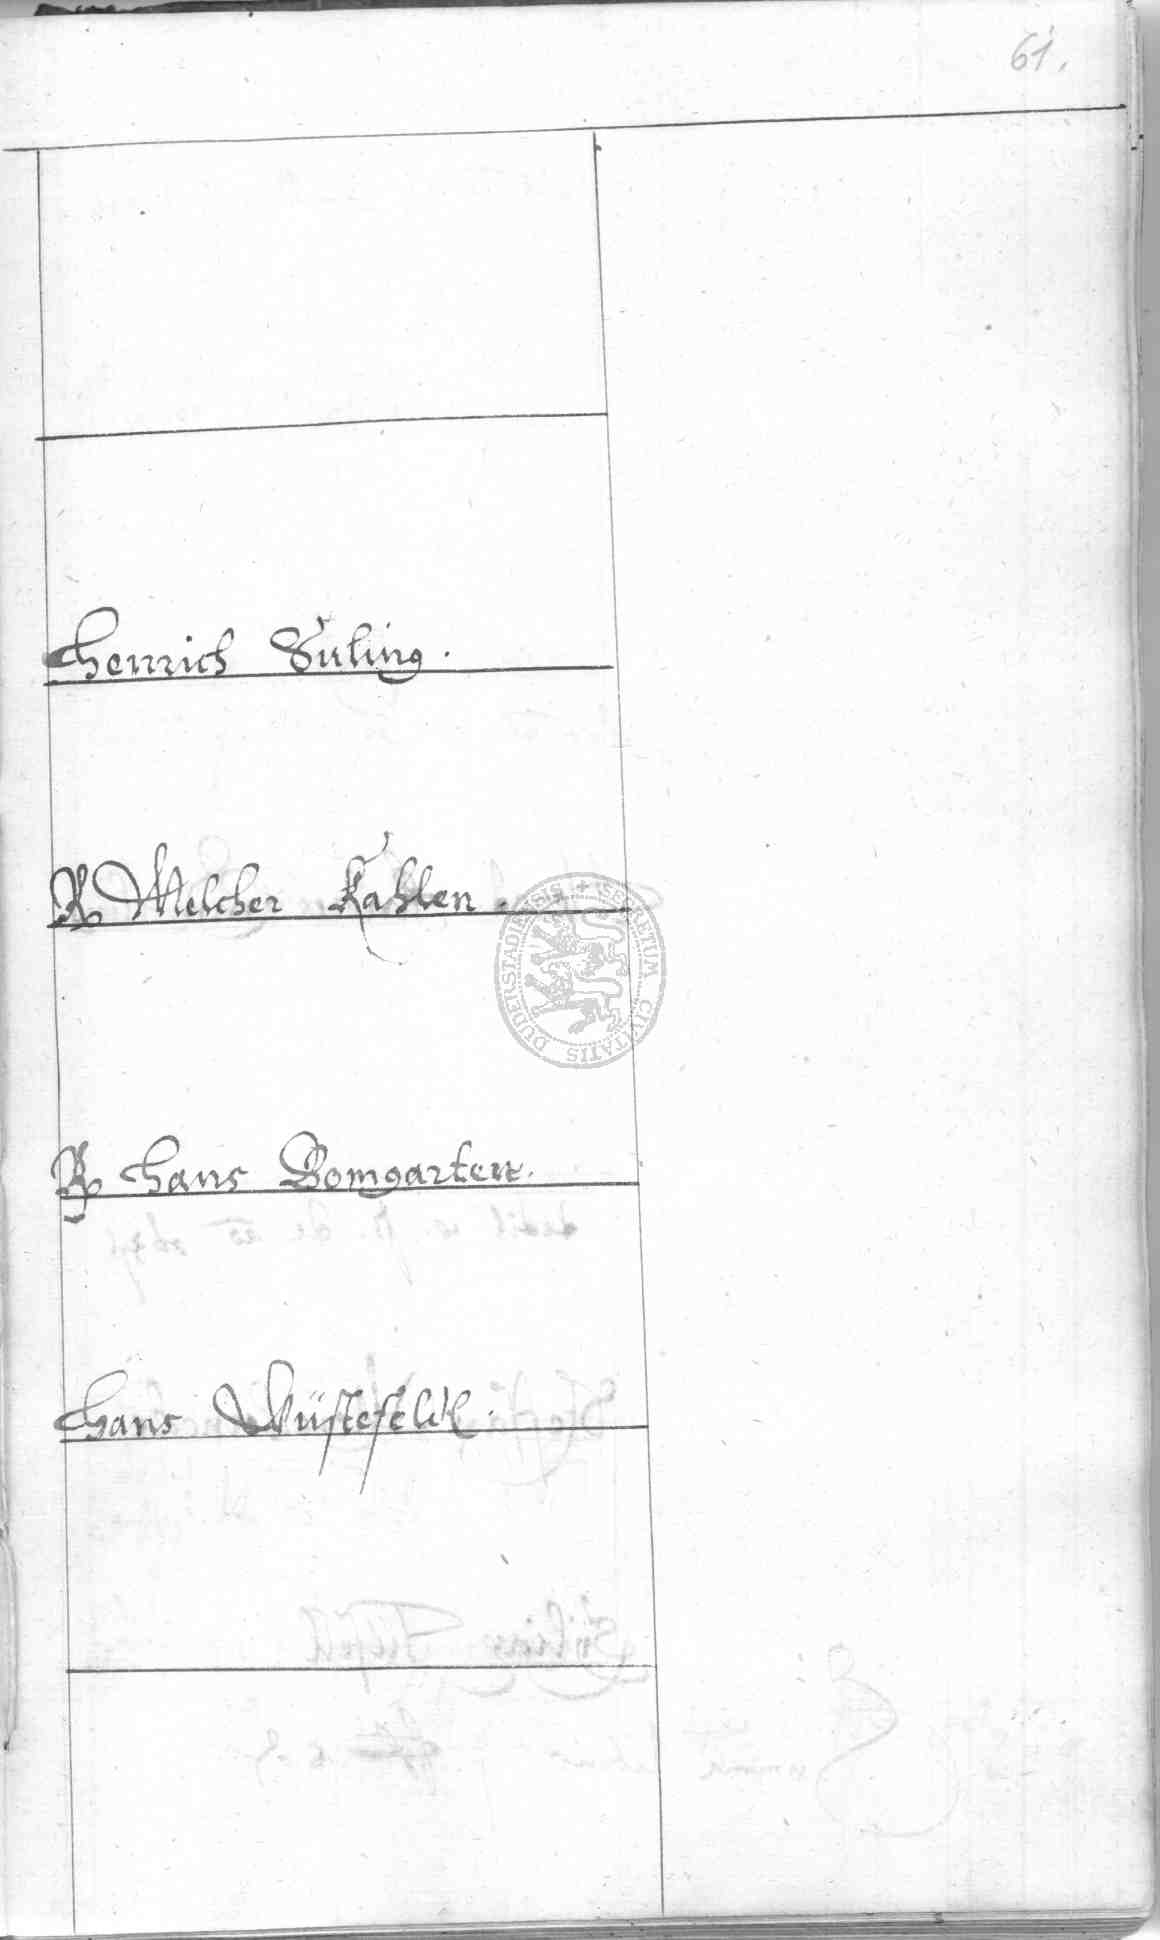 61.
Henrich Suling.
R Melcher Kahlen.
SECRETUM CIVITATIS DUDERSTADIENSIS
R Hans Bomgarten.
Hans Wüstefeldt.